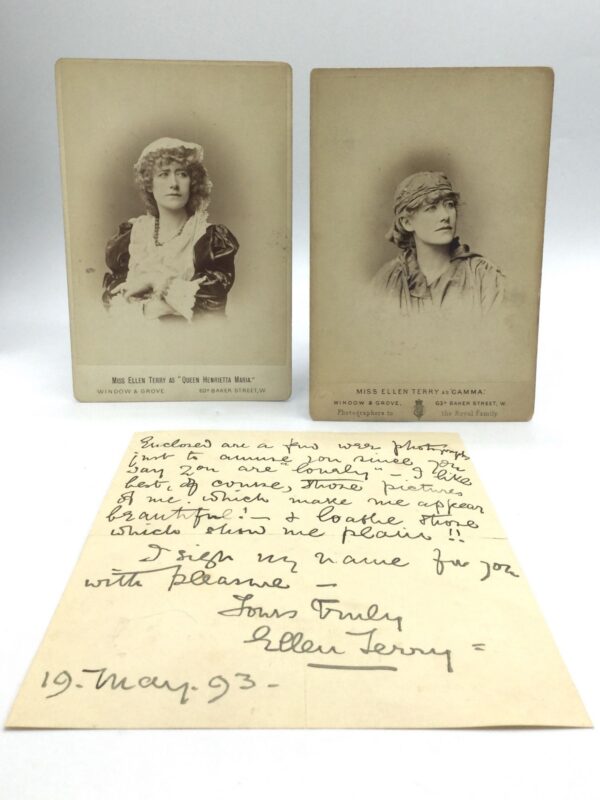 MISS ELLEN TERRY AS "QUEEN HENRIETTA MARIA."
WINDOW & GROVE. 63A BAKER STREET, W.
MISS ELLEN TERRY AS "CAMMA."
WINDOW & GROVE, 63A BAKER STREET, W.
Photographers to the Royal Family
Enclosed are a few wee photographs
just to amuse you since you
say you are "lonely" - I like
best, of course, those pictures
of me which make me appear
beautiful! - & loathe those
which show me plain!!
I sign my name for you
with pleasure -
Yours Truly
Ellen Terry =
19. May. 93 -